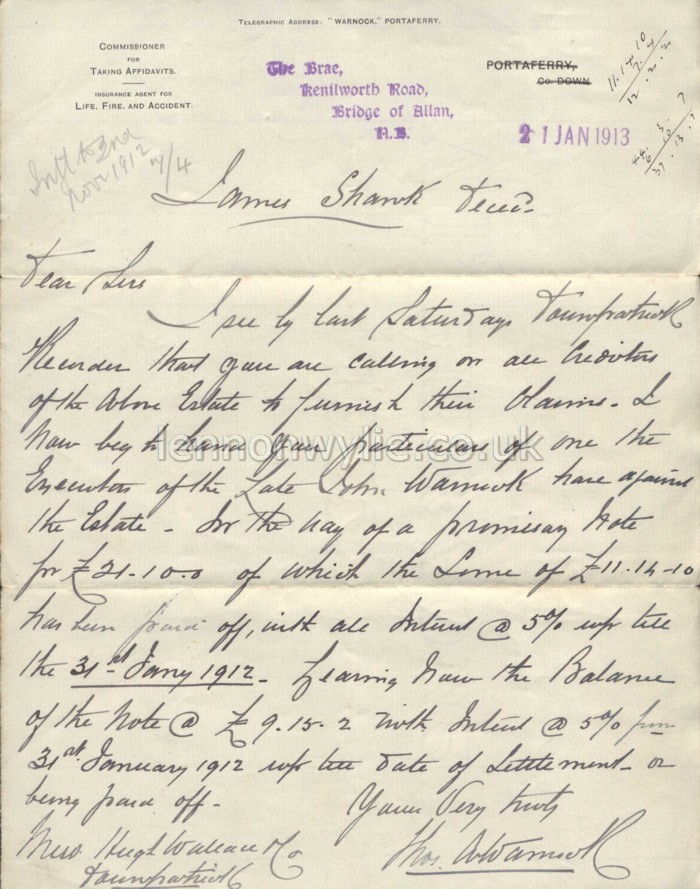 TELEGRAPHIC ADDRESS: "WARNOCK," PORTAFERRY.
COMMISSIONER
FOR
TAKING AFFIDAVITS.
INSURANCE AGENT FOR
LIFE, FIRE, AND ACCIDENT.
The Brae,
Kenilworth Road,
Bridge of Allan,
N.B.
PORTAFERRY,
Co. DOWN
21 JAN 1913
11.14.10
7.4
12.2.2
Intt to 2nd
Novr 1912 7/4
James Shawk Decd.
Dear Sirs
I see by last Saturdays Downpatrick
Recorder that you are calling on all Creditors
of the Above Estate to furnish their Claims - I
Now beg to hand you particulars of one the
Executors of the Late John Warnock have against
the Estate - In the way of a promisary Note
for £21-10-0 of which the Some of £11-14-10
has been paid off, with all Interest @ 5% up till
the 31st Jany 1912 - Leaving Now the Balance
of the Note @ £9.15.2 with Interest @ 5% from
31st January 1912 up till date of Settlement - or
being paid off -
Yours Very truly
Thos. Warnock
Messrs Hugh Wallace & Co
Downpatrick
lennonwylie.co.uk